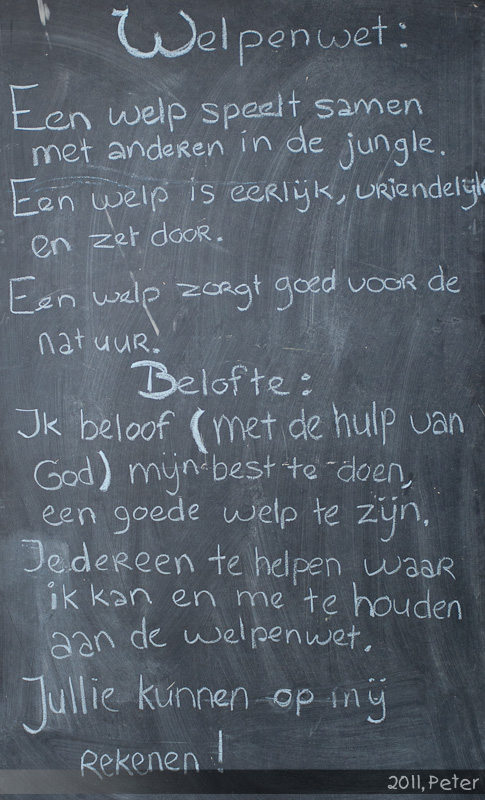 Welpenwet:
Een welp speelt samen
met anderen in de jungle.
Een welp is eerlijk, vriendelijk
en zet door.
Een welp zorgt goed voor de
natuur.
Belofte:
Ik beloof (met de hulp van
God) mijn best te doen,
een goede welp te zijn.
Iedereen te helpen waar
ik kan en me te houden
aan de welpenwet.
Jullie kunnen op mij
rekenen!
2011, Peter